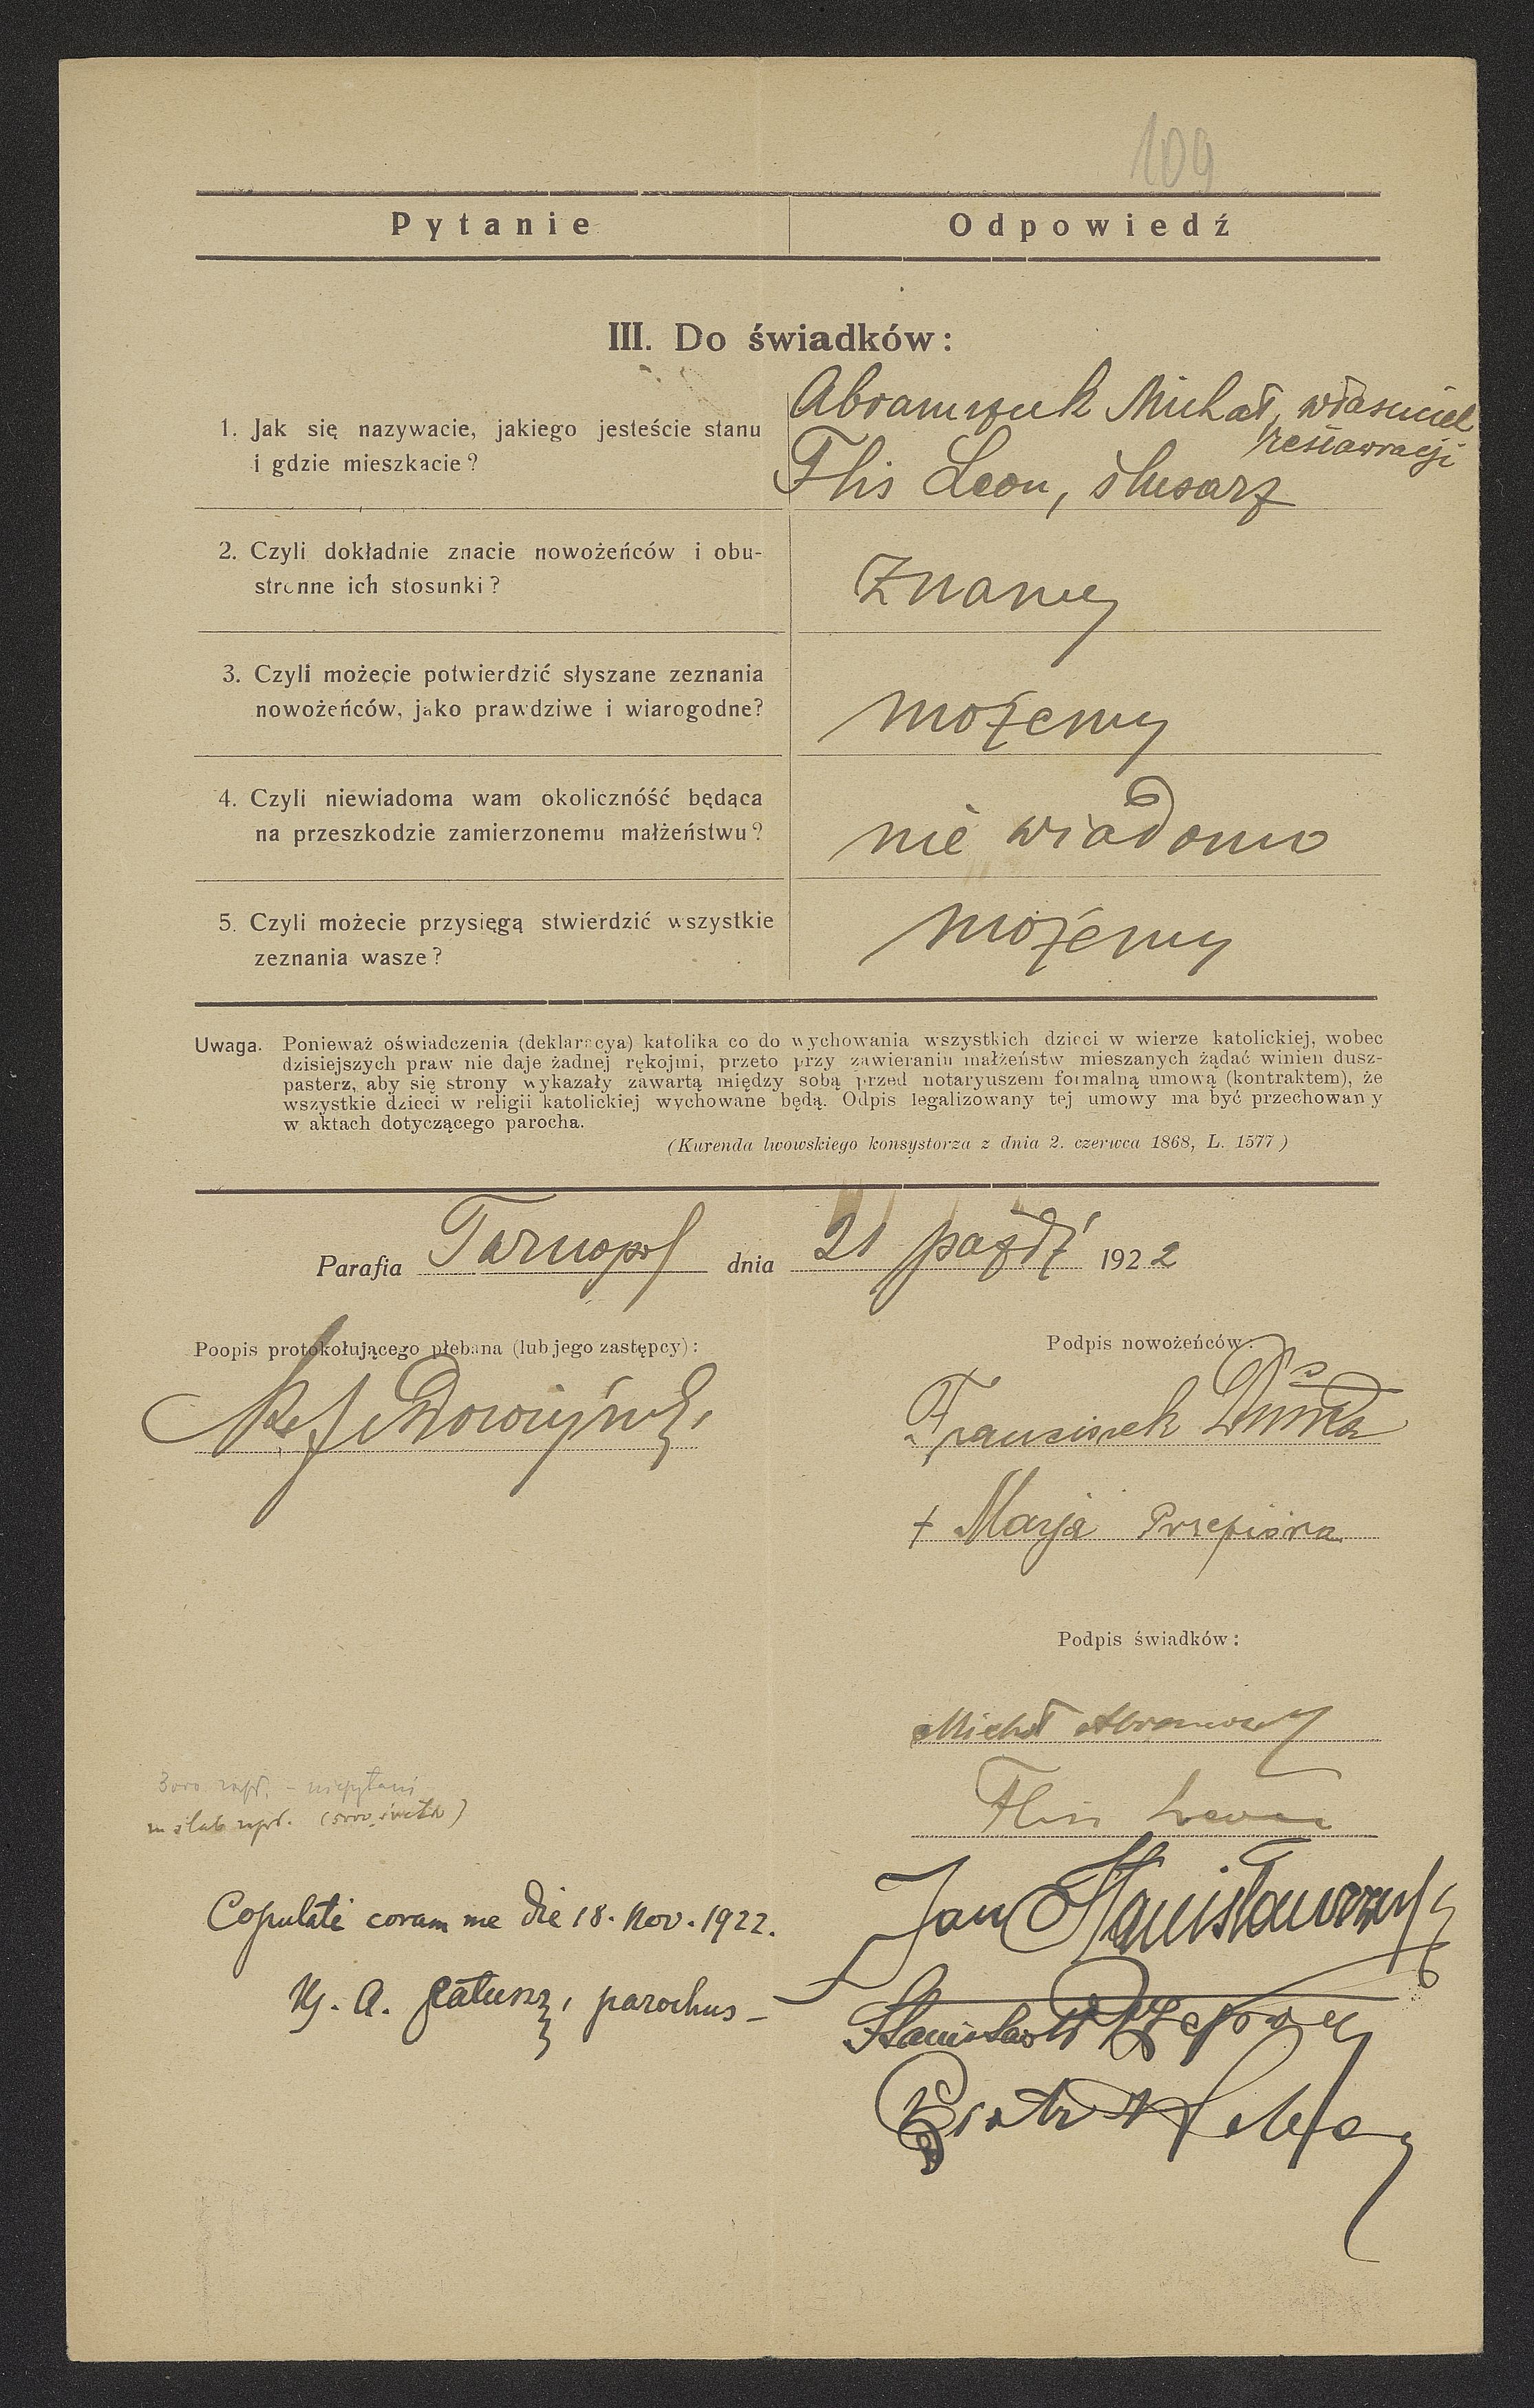 109
Pytanie
Odpowiedź
III. Do świadków:
1. Jak się nazywacie, jakiego jesteście stanu
i gdzie mieszkacie?
Abramczuk Michał, właściciel
restauracji
Flis Leon, ślusarz
2. Czyli dokładnie znacie nowożeńców i obu-
stronne ich stosunki?
Znamy
3. Czyli możecie potwierdzić słyszane zeznania
nowożeńców, jako prawdziwe i wiarogodne?
możemy
4. Czyli niewiadoma wam okolicznóść będąca
na przeszkodzie zamierzonemu małżeństwu?
nie wiadomo
5. Czyli możecie przysięgą stwierdzić wszystkie
zeznania wasze?
możemy
Uwaga. Ponieważ oświadczenia (deklaracya) katolika co do wychowania wszystkich dzieci w wierze katolickiej, wobec
dzisiejszych praw nie daje żadnej rękojmi, przeto przy zawieraniu małżeństw mieszanych żądać winien dusz-
pasterz, aby się strony wykazały zawartą między sobą przed notaryuszem formalną umową (kontraktem), że
wszystkie dzieci w religii katolickiej wychowane będą. Odpis legalizowany tej umowy ma być przechowany
w aktach dotyczącego parocha.
(Kurenda lwowskiego konsystorza z dnia 2. czerwca 1868, L. 1577)
Parafia Tarnopol dnia 21 paźdź 1922
Poopis protokołującego plebana (lub jego zastępcy):
Podpis nowożeńców:
Franciszek
+ Marja Przepióra
Podpis świadków:
Michał
Flis Leon
Copulati coram me die 18. Nov. 1922.
Jan
X. A. parochus
Stanisław
Piotr